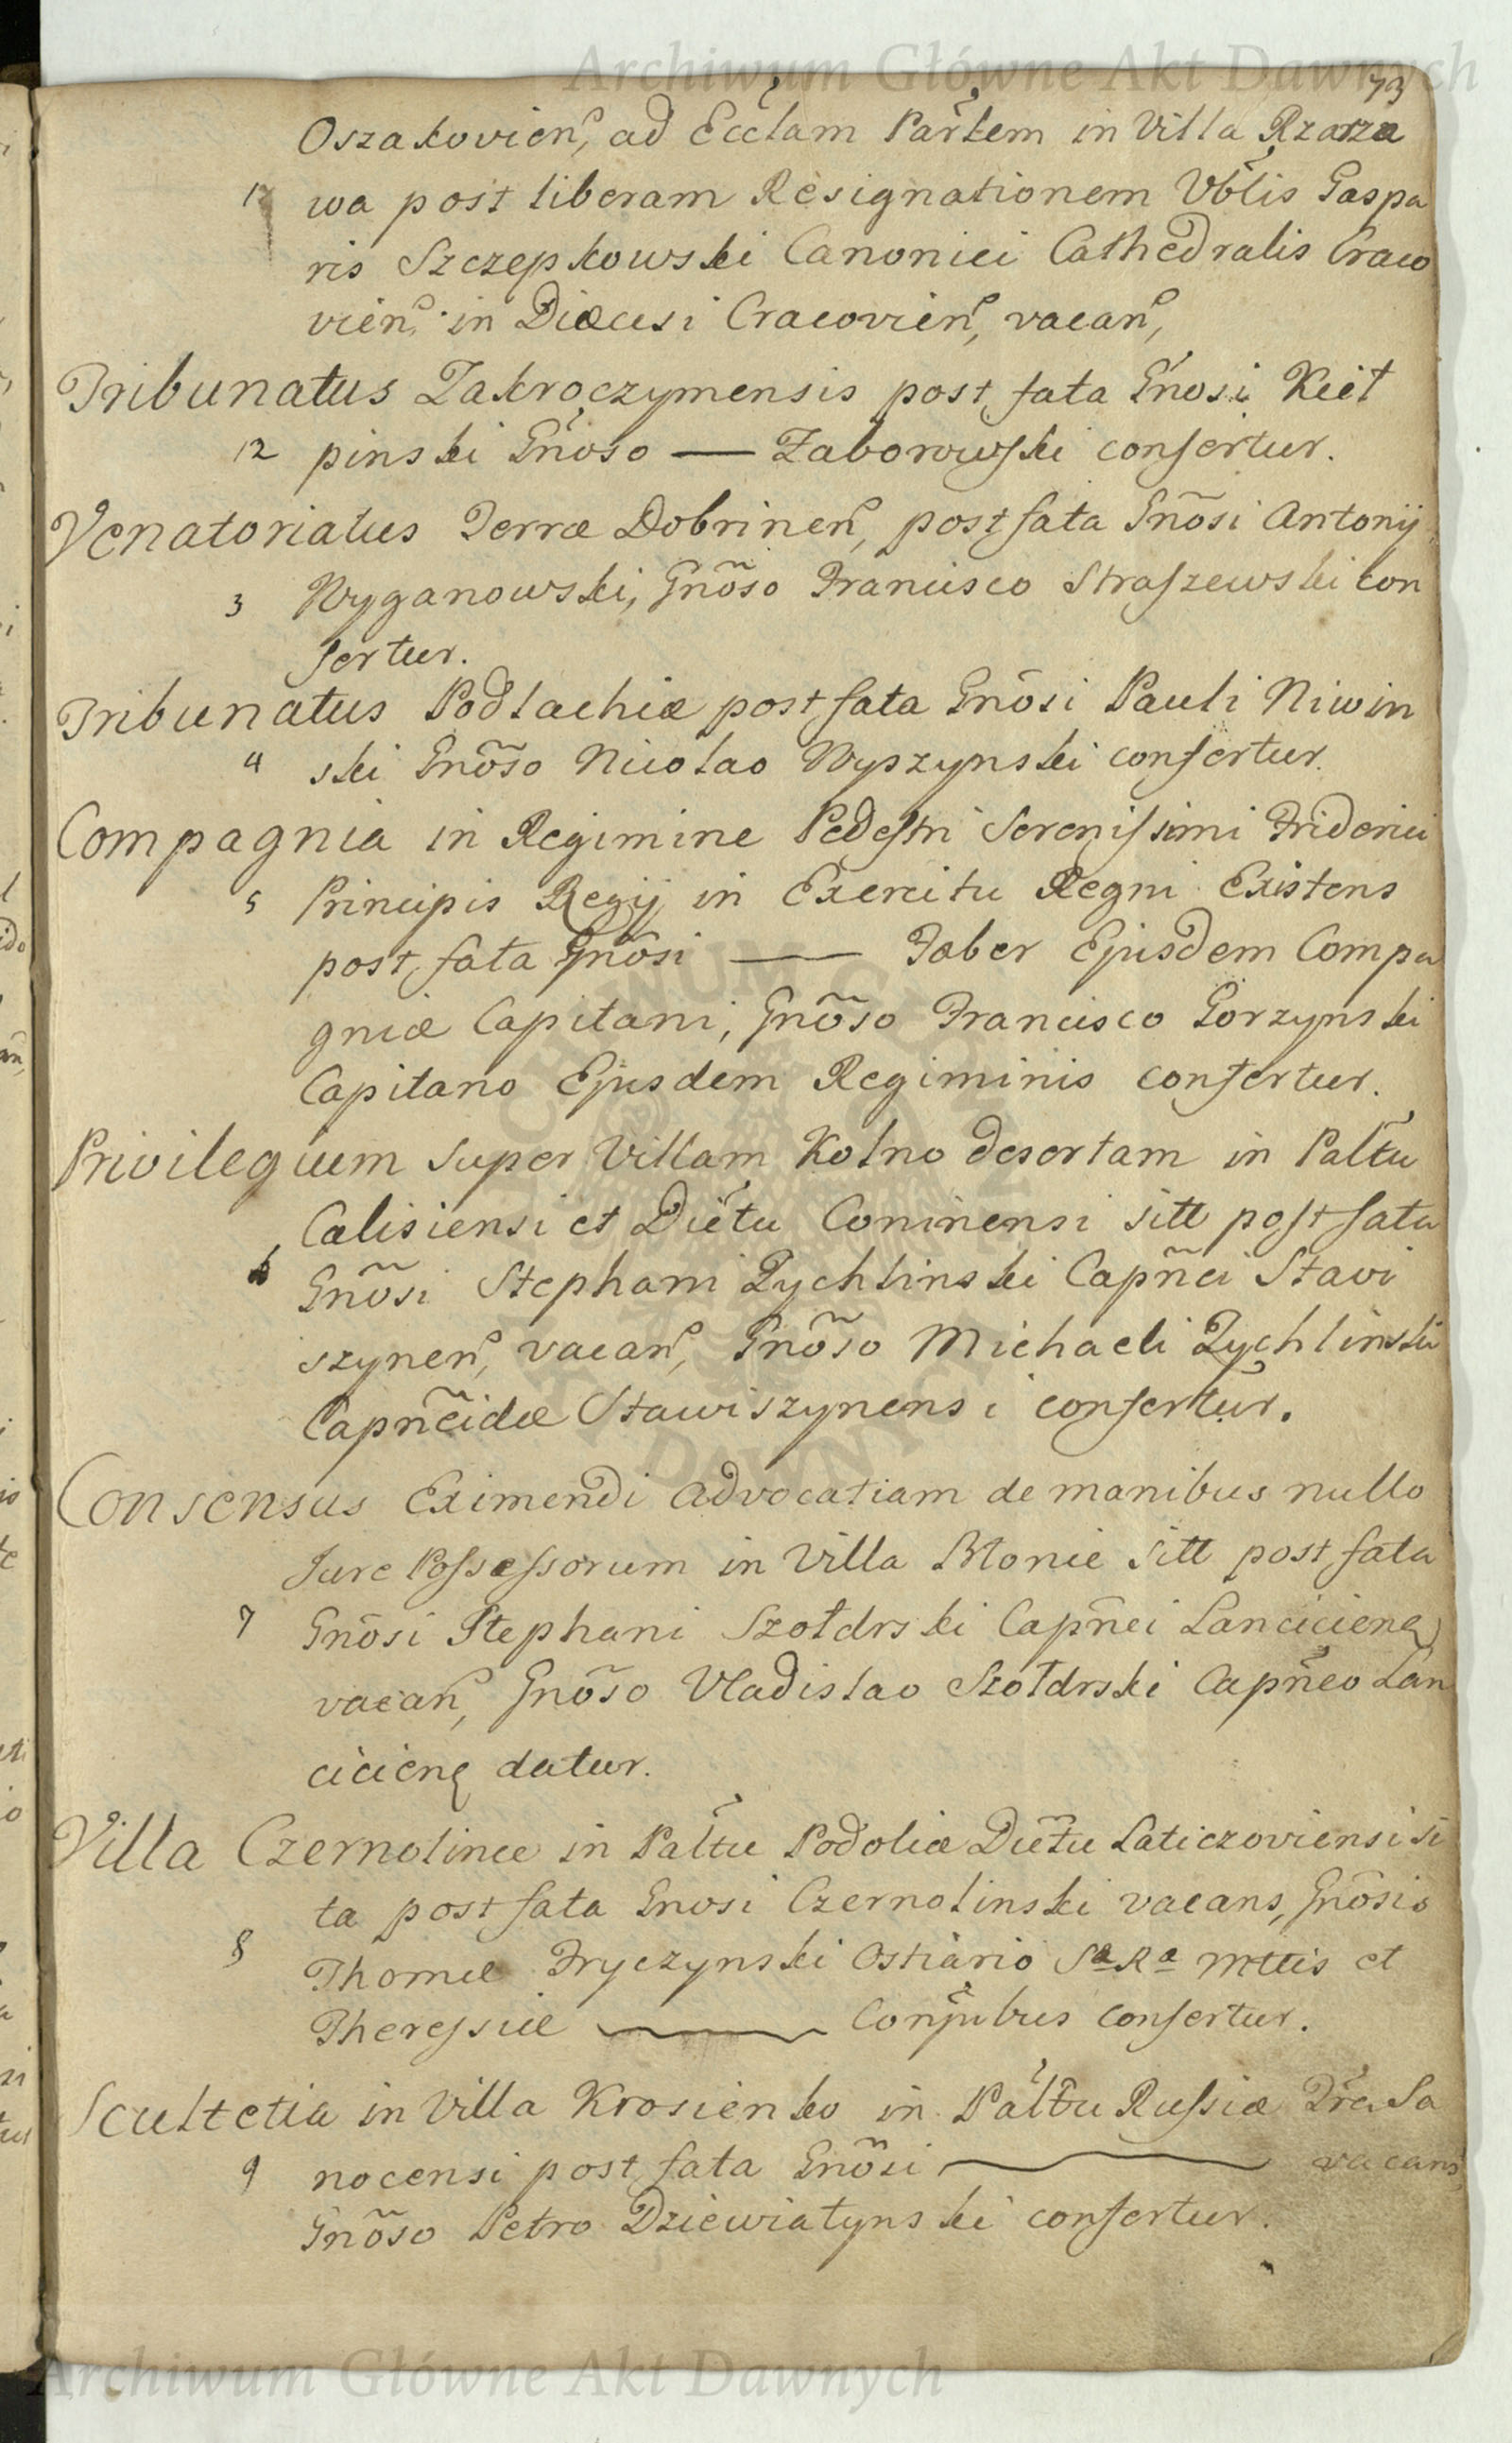 Archiwum Główne Akt Dawnych
73
Oszakovien, ad Ecclam Parlem in Villa Rzarza
12 wa post liberam Resignationem Vblis Gaspa
ris Szczepkowski Canonici Cathedralis Craco
vien. in Diæcesi Cracovien, vacan,
Tribunatus Zakroczymensis post fata Gnosi Kieł
12 pinski Gnoso — Zaborowski confertur.
Venatoriatus Terræ Dobrinen, post fata Gnõsi Antonij
3 Wyganowski, Gnõso Francisco Straszewski con
fertur.
Tribunatus Podlachiæ post fata Gnõsi Pauli Niwin
4 ski Gnõso Nicolao Wyszynski confertur.
Compagnia in Regimine Pedestri Serenissimi Friderici
5 Principis Regij in Exercitu Regni Existens
post fata Gnõsi — Faber Ejusdem Compa
gniæ Capitani, Gnõso Francisco Gorzynski
Capitano Ejusdem Regiminis confertur.
Privilegium super Villam Kolno desertam in Paltu
Calisiensi et Dictu Coninensi sitt post fata
6 Gnõsi Stephani Zychlinski Capñei Stavi
szynen, vacan, Gnõso Michaeli Zychlinski
Capñeidæ Stawiszynensi confertur.
Consensus Eximendi Advocatiam de manibus nullo
Jure Possessorum in Villa Błonie sitt post fata
7 Gnõsi Stephani Szołdrski Capñei Lancicienę
vacan, Gnõso Vladislao Szołdrski Capñeo Lan
cicienę datur.
Villa Czernolince in Paltu Podoliæ Dictu Laticzoviensi si
ta post fata Gnosi Czernolinski vacans, Gnõsis
8 Thomæ Fryczynski Ostiario Sæ Ræ Mttis et
Theressiæ — Conjubus confertur.
Scultetia in Villa Krosienko in Paltu Russiæ Tra Sa
9 nocensi post fata Gnõsi — vacans,
Gnõso Petro Dziewiatynski confertur.
Archiwum Główne Akt Dawnych